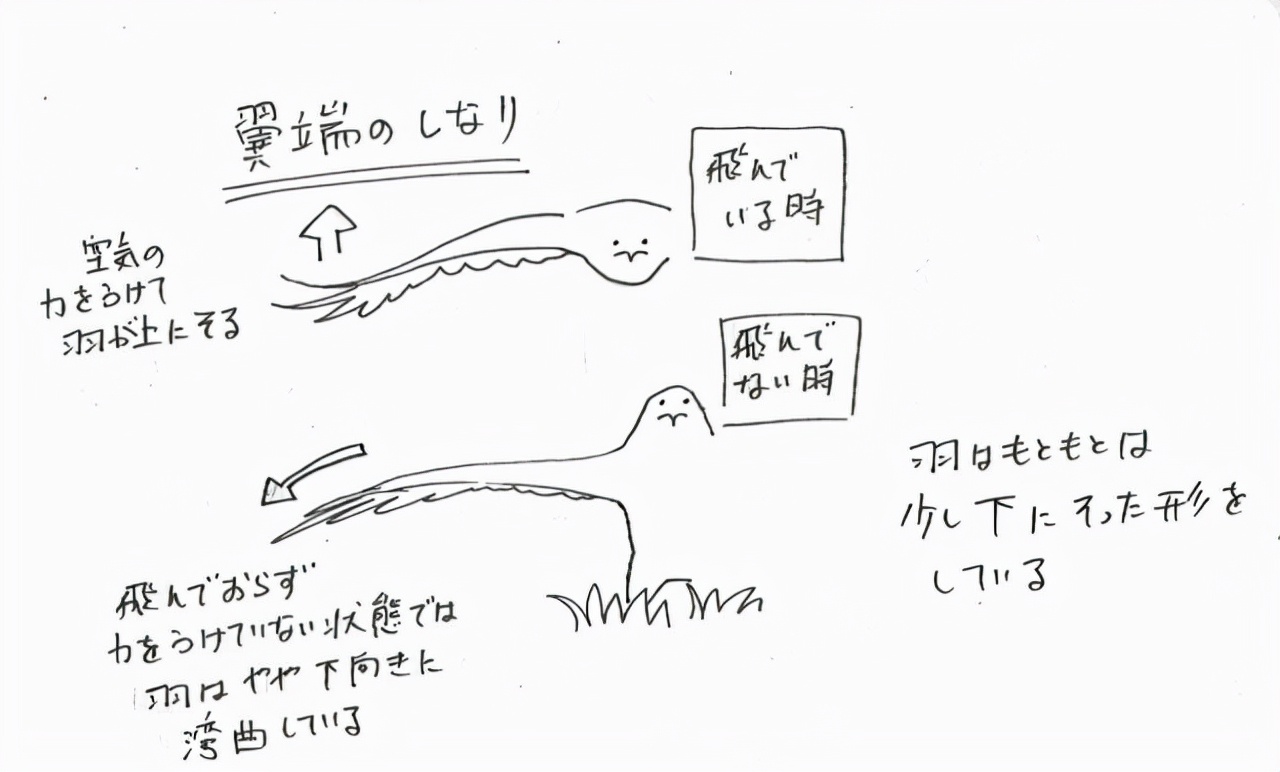 翼端のしなり
飛んで
いる時
空気の
力をうけて
羽が上にそる
飛んで
ない時
羽はもともとは
少し下にそった形を
している
飛んでおらず
力をうけていない状態では
羽はやや下向きに
湾曲している